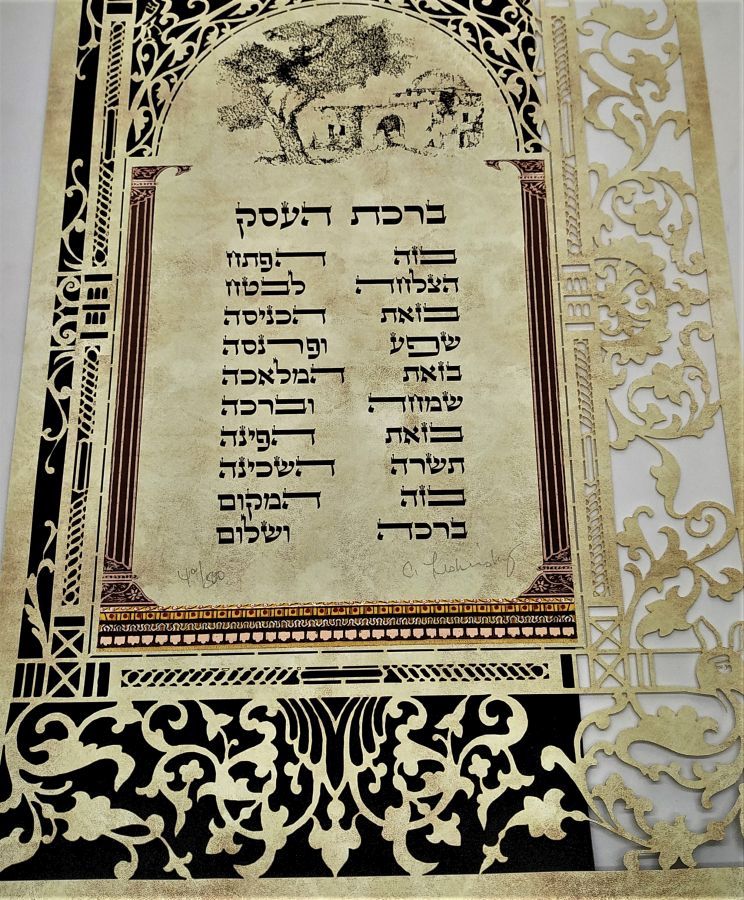 ברכת העסק
בזה הפתח
הצלחה לבטח
בזאת הכניסה
שפע ופרנסה
בזאת המלאכה
שמחה וברכה
בזאת הפינה
תשרה השכינה
בזה המקום
ברכה ושלום
49/500